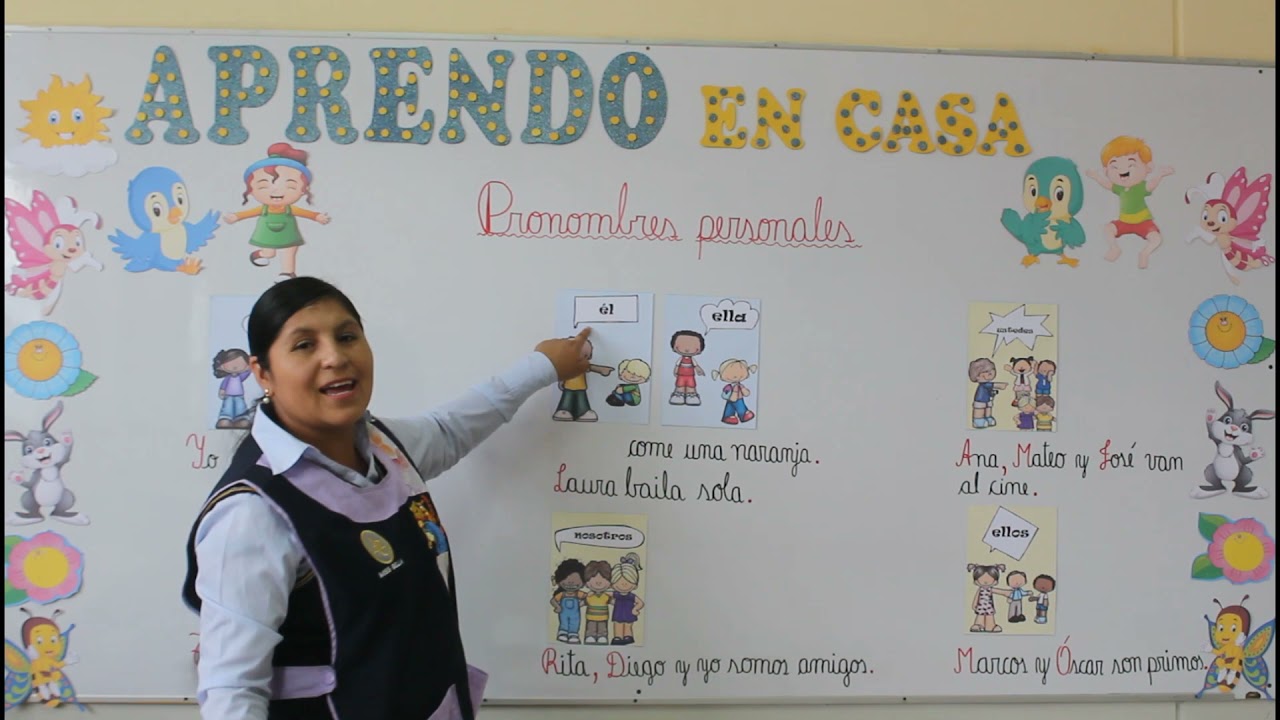 APRENDO EN CASA
Pronombres personales
él
ella
ustedes
Yo
come una naranja.
Laura baila sola.
Ana, Mateo y José van
al cine.
nosotros
ellos
Rita, Diego y yo somos amigos.
Marcos y Óscar son primos.